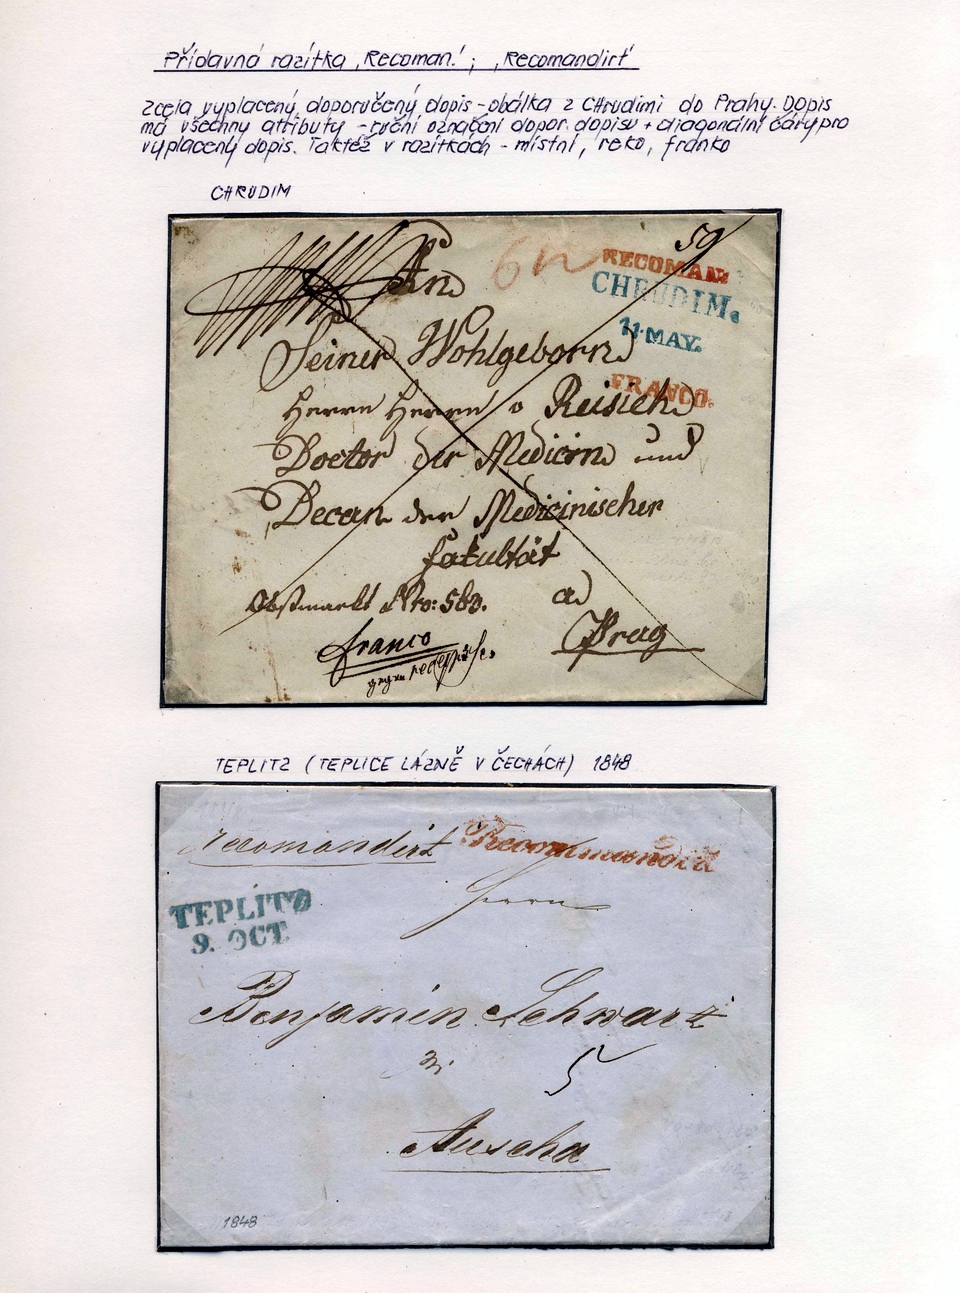 Přídavná razítka ‚Recoman.'; ‚Recomandirt'
Zcela vyplacený doporučený dopis - obálka z Chrudimi do Prahy. Dopis
má všechny atributy - ruční označení dopor. dopisu + diagonální čáry pro
vyplacený dopis. Taktéž v razítkách - místní, reko, franko
CHRUDIM
59
An
RECOMAN:
CHRUDIM.
11. MAY.
Seiner Wohlgeborn
FRANCO.
Herrn Herrn v Reisich
Doctor der Medicin und
Decan der Medicinischer
Fakultät
Obstmarkt Nro: 583.
a
Prag
franco
gegen
TEPLITZ (TEPLICE LÁZNĚ V ČECHÁCH) 1848
recomandirt
Recommandirt
Herrn
TEPLITZ
9. OCT.
Benjamin Schwarz
5
Auscha
1848